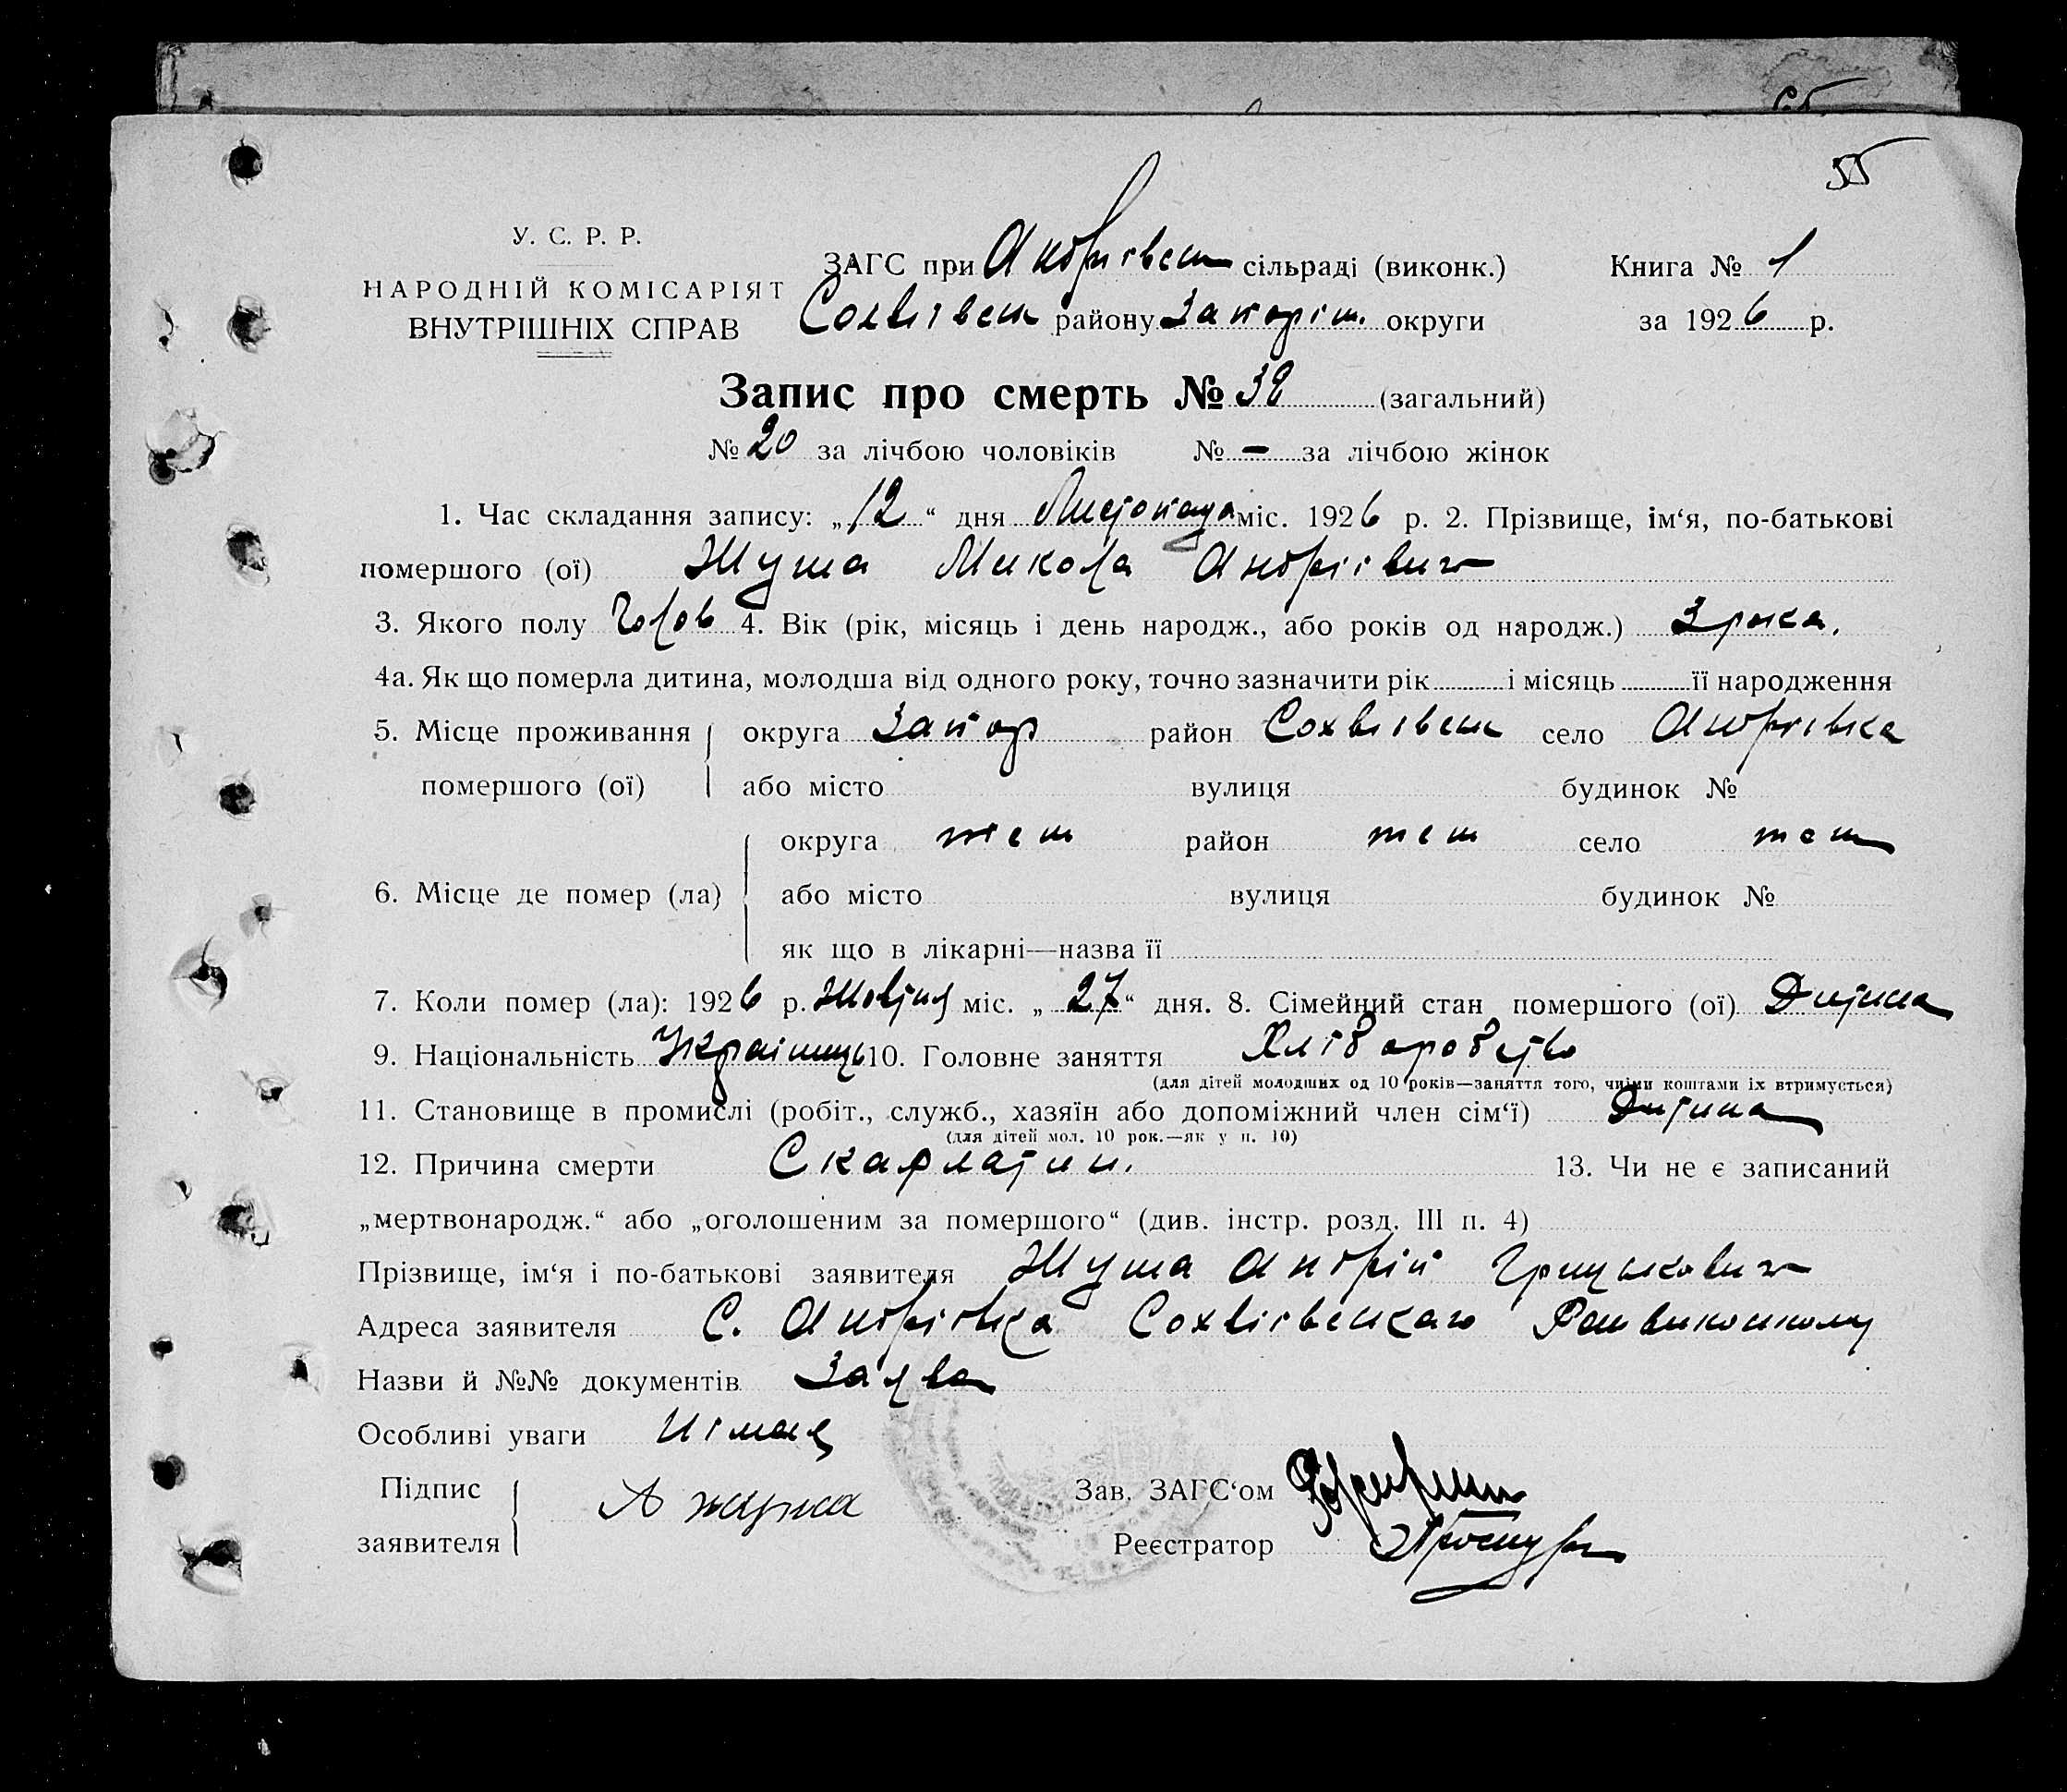 55
У. С. Р. Р.
НАРОДНІЙ КОМІСАРІЯТ
ВНУТРІШНІХ СПРАВ
ЗАГС при Андріівськ сільраді (виконк.)
Софіівськ району Запоріж. округи
Книга № 1
за 1926 р.
Запис про смерть № 38 (загальний)
№ 20 за лічбою чоловіків № — за лічбою жінок
1. Час складання запису: „12“ дня Листопада міс. 1926 р. 2. Прізвище, ім‘я, по-батькові
помершого (ої) Жуша Микола Андріівич
3. Якого полу Чолов 4. Вік (рік, місяць і день народж., або років од народж.) 3 рока.
4а. Як що померла дитина, молодша від одного року, точно зазначити рік і місяць її народження
5. Місце проживання округа Запор район Сохвіівськ село Андріівка
помершого (ої) або місто вулиця будинок №
округа теж район теж село теж
6. Місце де помер (ла) або місто вулиця будинок №
як що в лікарні—назва її
7. Коли помер (ла): 1926 р. Жовтня міс. „27“ дня. 8. Сімейний стан помершого (ої) Дитина
9. Національність Украінець 10. Головне заняття Хліборобство
(для дітей молодших од 10 років—заняття того, чиїми коштами їх втримується)
11. Становище в промислі (робіт., служб., хазяїн або допоміжний член сім‘ї) Дитина
(для дітей мол. 10 рок.—як у п. 10)
12. Причина смерти Скарлатин. 13. Чи не є записаний
„мертвонародж.“ або „оголошеним за помершого“ (див. інстр. розд. III п. 4)
Прізвище, ім‘я і по-батькові заявителя Жуша Андрій
Адреса заявителя С. Андріівка Сохвіівського Райвиконкому
Назви й №№ документів Заява
Особливі уваги Німая
Підпис
заявителя
А жуша
Зав. ЗАГС‘ом
Реєстратор